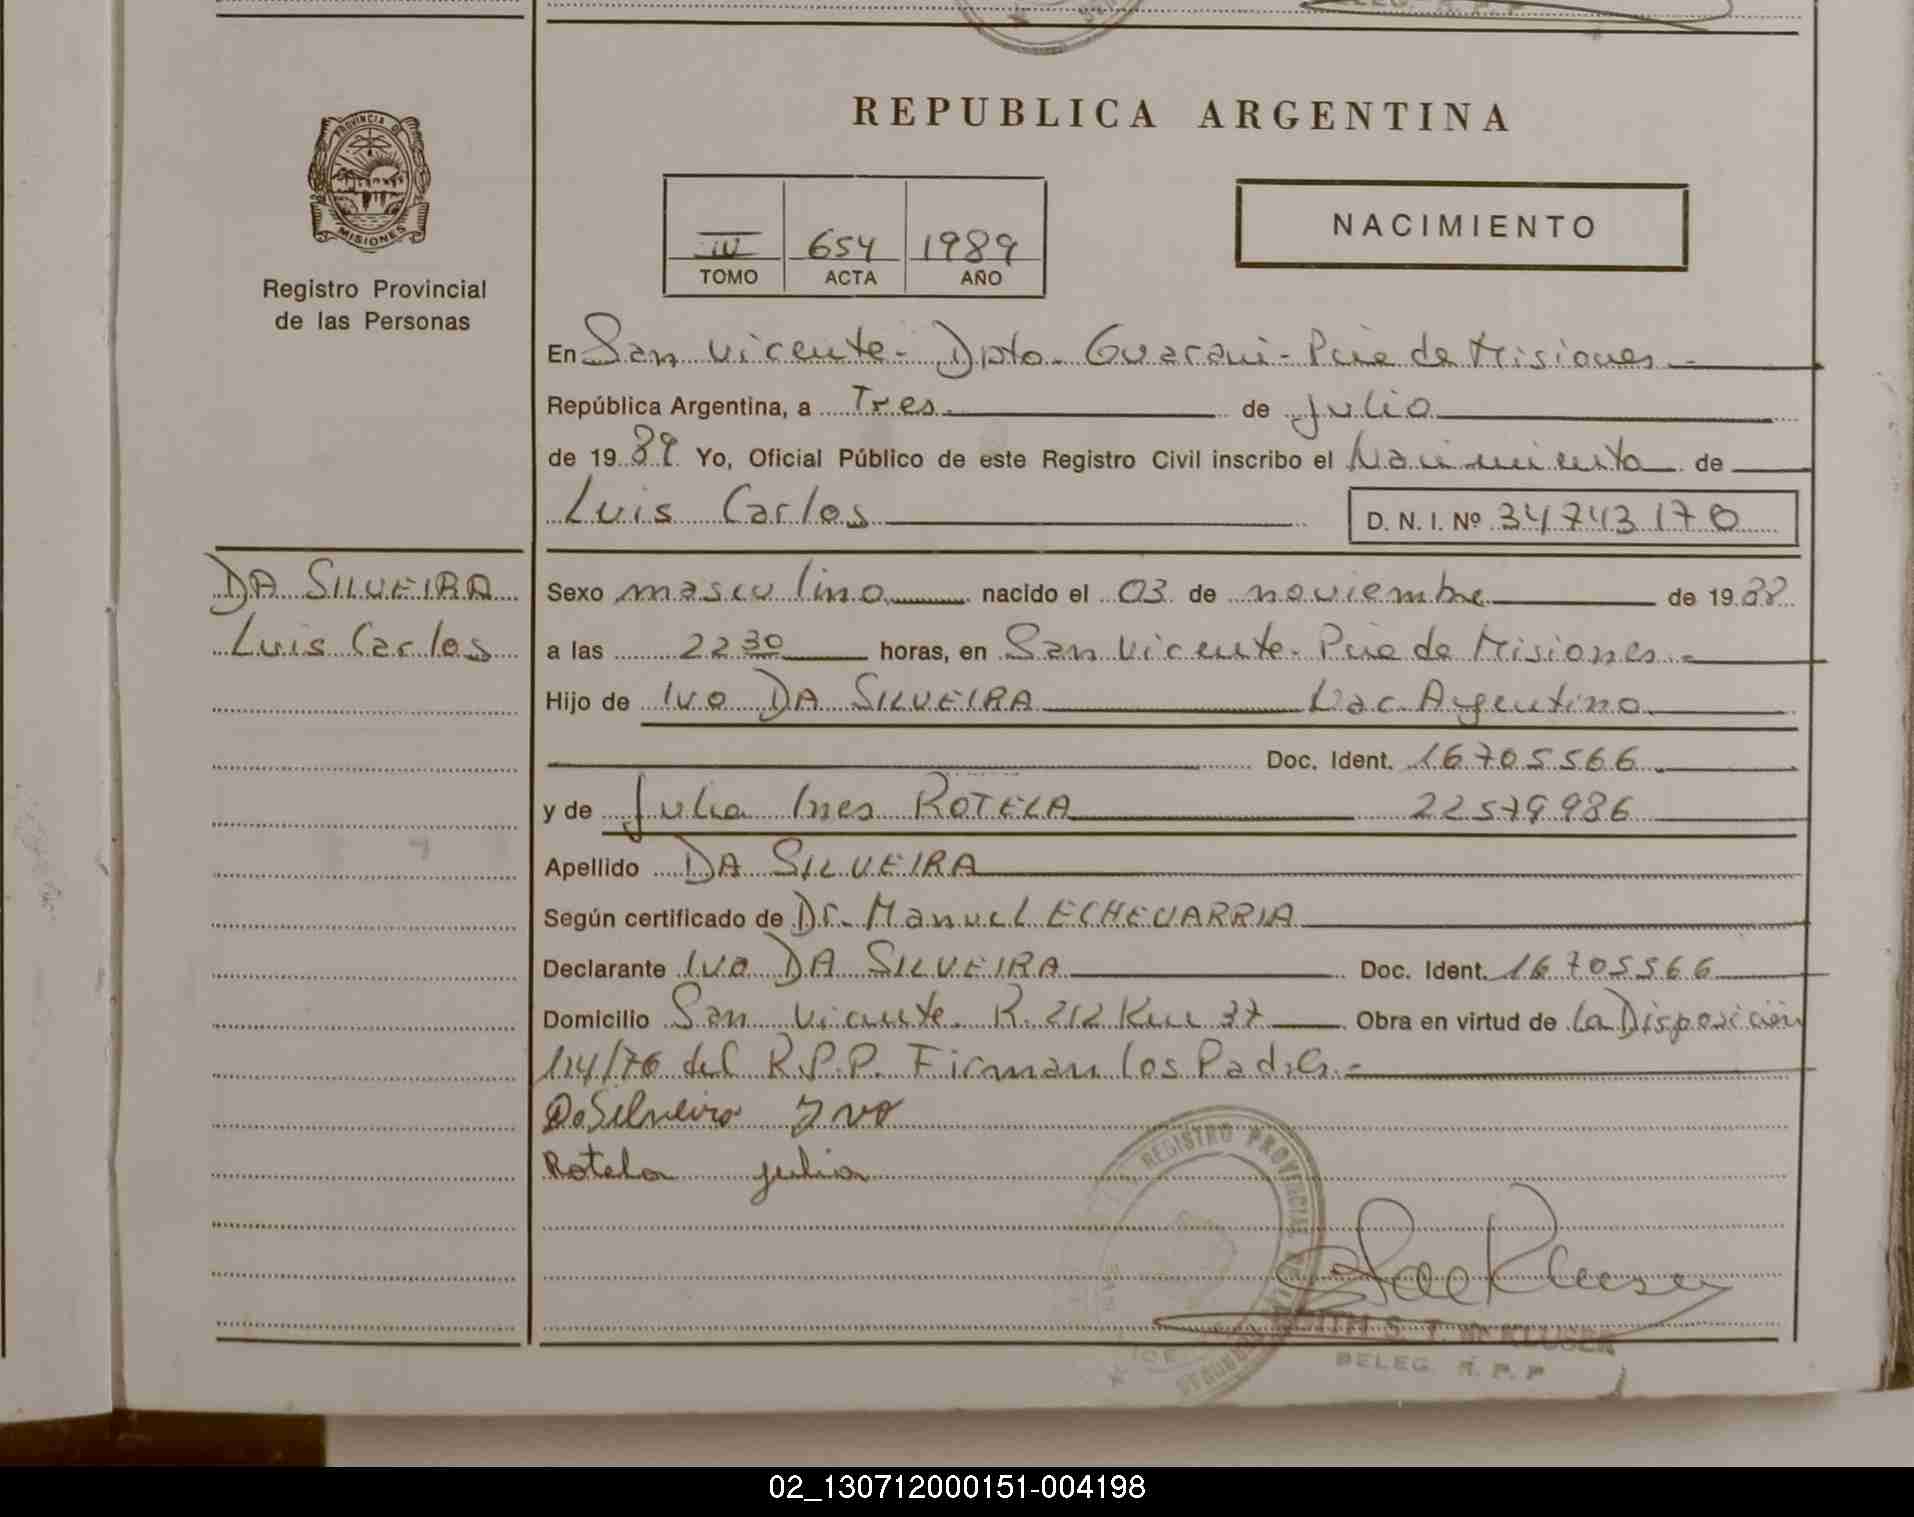 REPUBLICA ARGENTINA
PROVINCIA DE
MISIONES
Registro Provincial
de las Personas
IV 654 1989
TOMO ACTA AÑO
NACIMIENTO
En San Vicente - Dpto. Guarani - Pcia de Misiones -
República Argentina, a Tres de Julio
de 19 89 Yo, Oficial Público de este Registro Civil inscribo el Nacimiento de
Luis Carlos D. N. I. Nº 34743170
DA SILVEIRA
Luis Carlos
Sexo masculino nacido el 03 de noviembre de 19 88
a las 22 30 horas, en San Vicente - Pcia de Misiones -
Hijo de Ivo DA SILVEIRA Nac. Argentino
Doc. Ident. 16705566
y de Julia Ines ROTELA 22579986
Apellido DA SILVEIRA
Según certificado de Dr. Manuel ECHEVARRIA
Declarante Ivo DA SILVEIRA Doc. Ident. 16705566
Domicilio San Vicente R. 212 Km 37 Obra en virtud de La Disposición
114/76 del R.P.P. Firman los Padres -
Da Silveira Ivo
Rotela julia
REGISTRO PROVINCIAL DE
DELEG. R. P. P
02_130712000151-004198